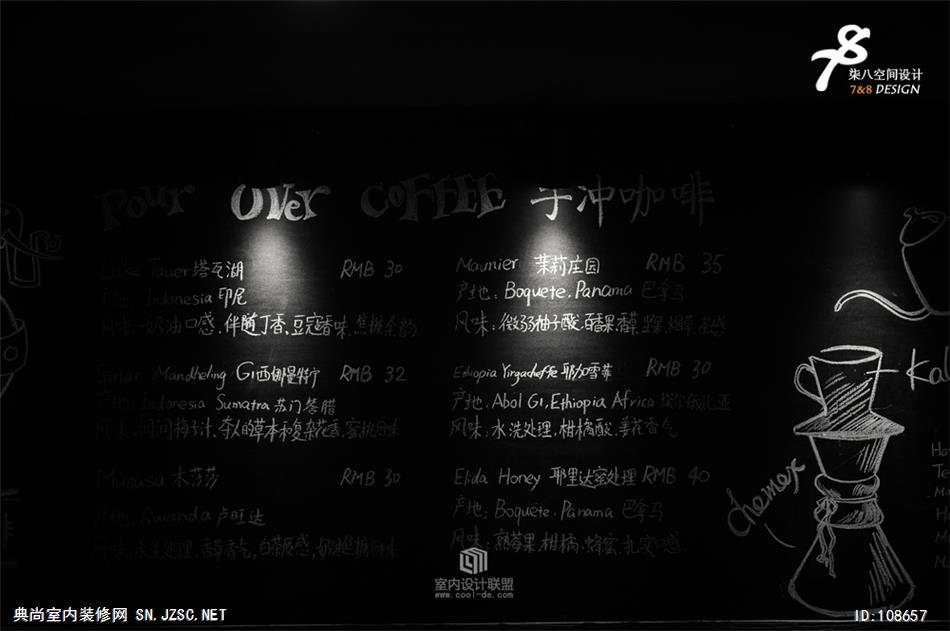 78
柒八空间设计
7&8 DESIGN
Pour Over COFFEE 手冲咖啡
Lake Tawer 塔瓦湖 RMB 30
产地: Indonesia 印尼
风味: 奶油口感, 伴随丁香、豆蔻香味, 焦糖余韵
Sinar Mandheling G1西娜曼特宁 RMB 32
产地: Indonesia Sumatra 苏门答腊
风味: 梅子汁、草本和复杂花香, 蜜桃回味
Musasa 木莎莎 RMB 30
产地: Rwanda 卢旺达
风味: 水洗处理, 香草香气, 白茶质感, 奶糖回味
Maunier 茉莉庄园 RMB 35
产地: Boquete, Panama 巴拿马
风味: 微弱柚子酸、百香果、香草、坚果、烟草、茶感
Ethiopia Yirgacheffe 耶加雪菲 RMB 30
产地: Abol G1, Ethiopia Africa 埃尔俄比亚
风味: 水洗处理, 柑橘酸、姜花香气
Elida Honey 耶里达蜜处理 RMB 40
产地: Boquete, Panama 巴拿马
风味: 熟莓果、柑橘、蜂蜜、扎实口感.
chemex
Kal
室内设计联盟
www.cool-de.com
典尚室内装修网 SN.JZSC.NET
ID:108657